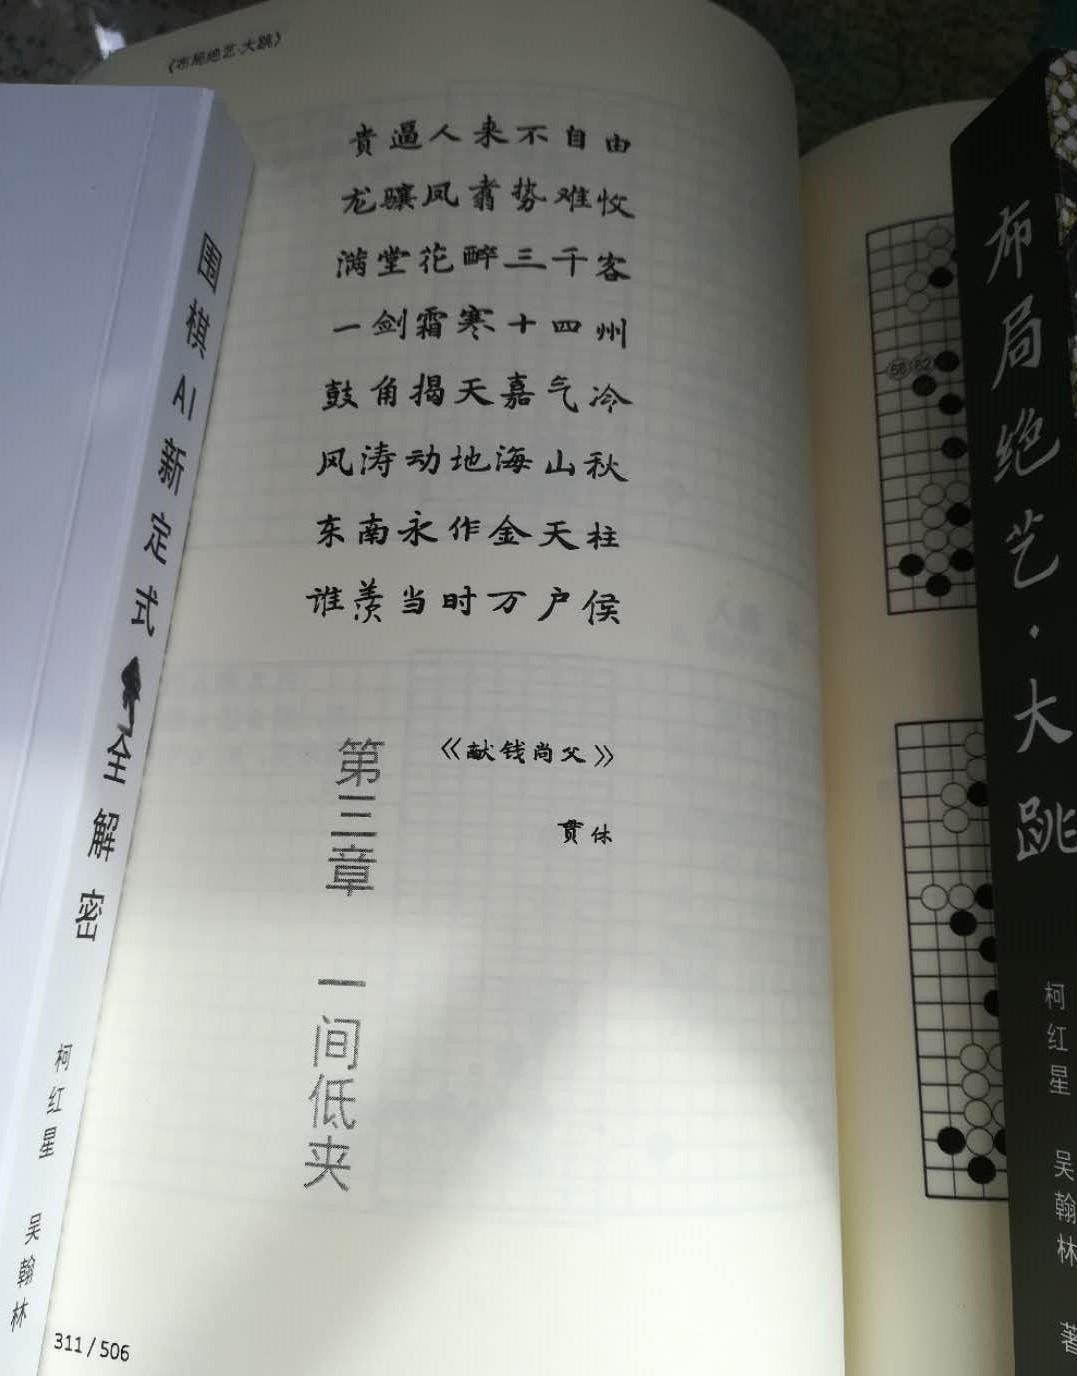 《布局绝艺·大跳》
贵逼人来不自由
龙骧凤翥势难收
满堂花醉三千客
一剑霜寒十四州
鼓角揭天嘉气冷
风涛动地海山秋
东南永作金天柱
谁羡当时万户侯
《献钱尚父》
贯休
第三章 一间低夹
311/506
围棋AI新定式全解密
柯红星 吴翰林
布局绝艺·大跳
柯红星 吴翰林 著